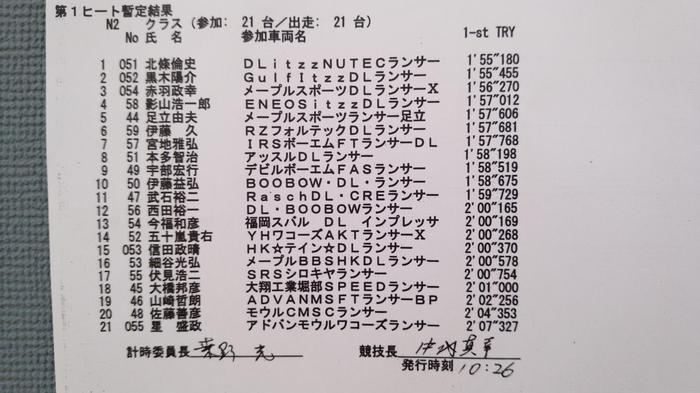 第１ヒート暫定結果
N2 クラス（参加： 21 台／出走： 21 台）
No 氏 名 参加車両名 1-st TRY
1 051 北條倫史 ＤＬｉｔｚｚＮＵＴＥＣランサー 1'55"180
2 052 黒木陽介 ＧｕｌｆＩｔｚｚＤＬランサー 1'55"455
3 054 赤羽政幸 メープルスポーツＤＬランサーＸ 1'56"270
4 58 影山浩一郎 ＥＮＥＯＳｉｔｚｚＤＬランサー 1'57"012
5 44 足立由夫 メープルスポーツランサー足立 1'57"606
6 59 伊藤 久 ＲＺフォルテックＤＬランサー 1'57"681
7 57 宮地雅弘 ＩＲＳボーエムＦＴランサーＤＬ 1'57"768
8 51 本多智治 アッスルＤＬランサー 1'58"198
9 49 宇部宏行 デビルボーエムＦＡＳランサー 1'58"519
10 50 伊藤益弘 ＢＯＯＢＯＷ・ＤＬ・ランサー 1'58"675
11 47 武石裕二 Ｒａ'ｓｃｈＤＬ・ＣＲＥランサー 1'59"729
12 56 西田裕一 ＤＬ・ＢＯＯＢＯＷランサー 2'00"165
13 54 今福和彦 福岡スバル ＤＬ インプレッサ 2'00"169
14 52 五十嵐貴右 ＹＨワコーズＡＫＴランサーＸ 2'00"268
15 053 信田政晴 ＨＫ☆テイン☆ＤＬランサー 2'00"370
16 53 細谷光弘 メープルＢＢＳＨＫＤＬランサー 2'00"578
17 55 伏見浩二 ＳＲＳシロキヤランサー 2'00"754
18 45 大橋邦彦 大翔工業堀部ＳＰＥＥＤランサー 2'01"000
19 46 山崎哲朗 ＡＤＶＡＮＭＳＦＴランサーＢＰ 2'02"256
20 48 佐藤善彦 モウルＣＭＳＣランサー 2'04"353
21 055 星 盛政 アドバンモウルワコーズランサー 2'07"327
計時委員長 競技長
発行時刻 10:26